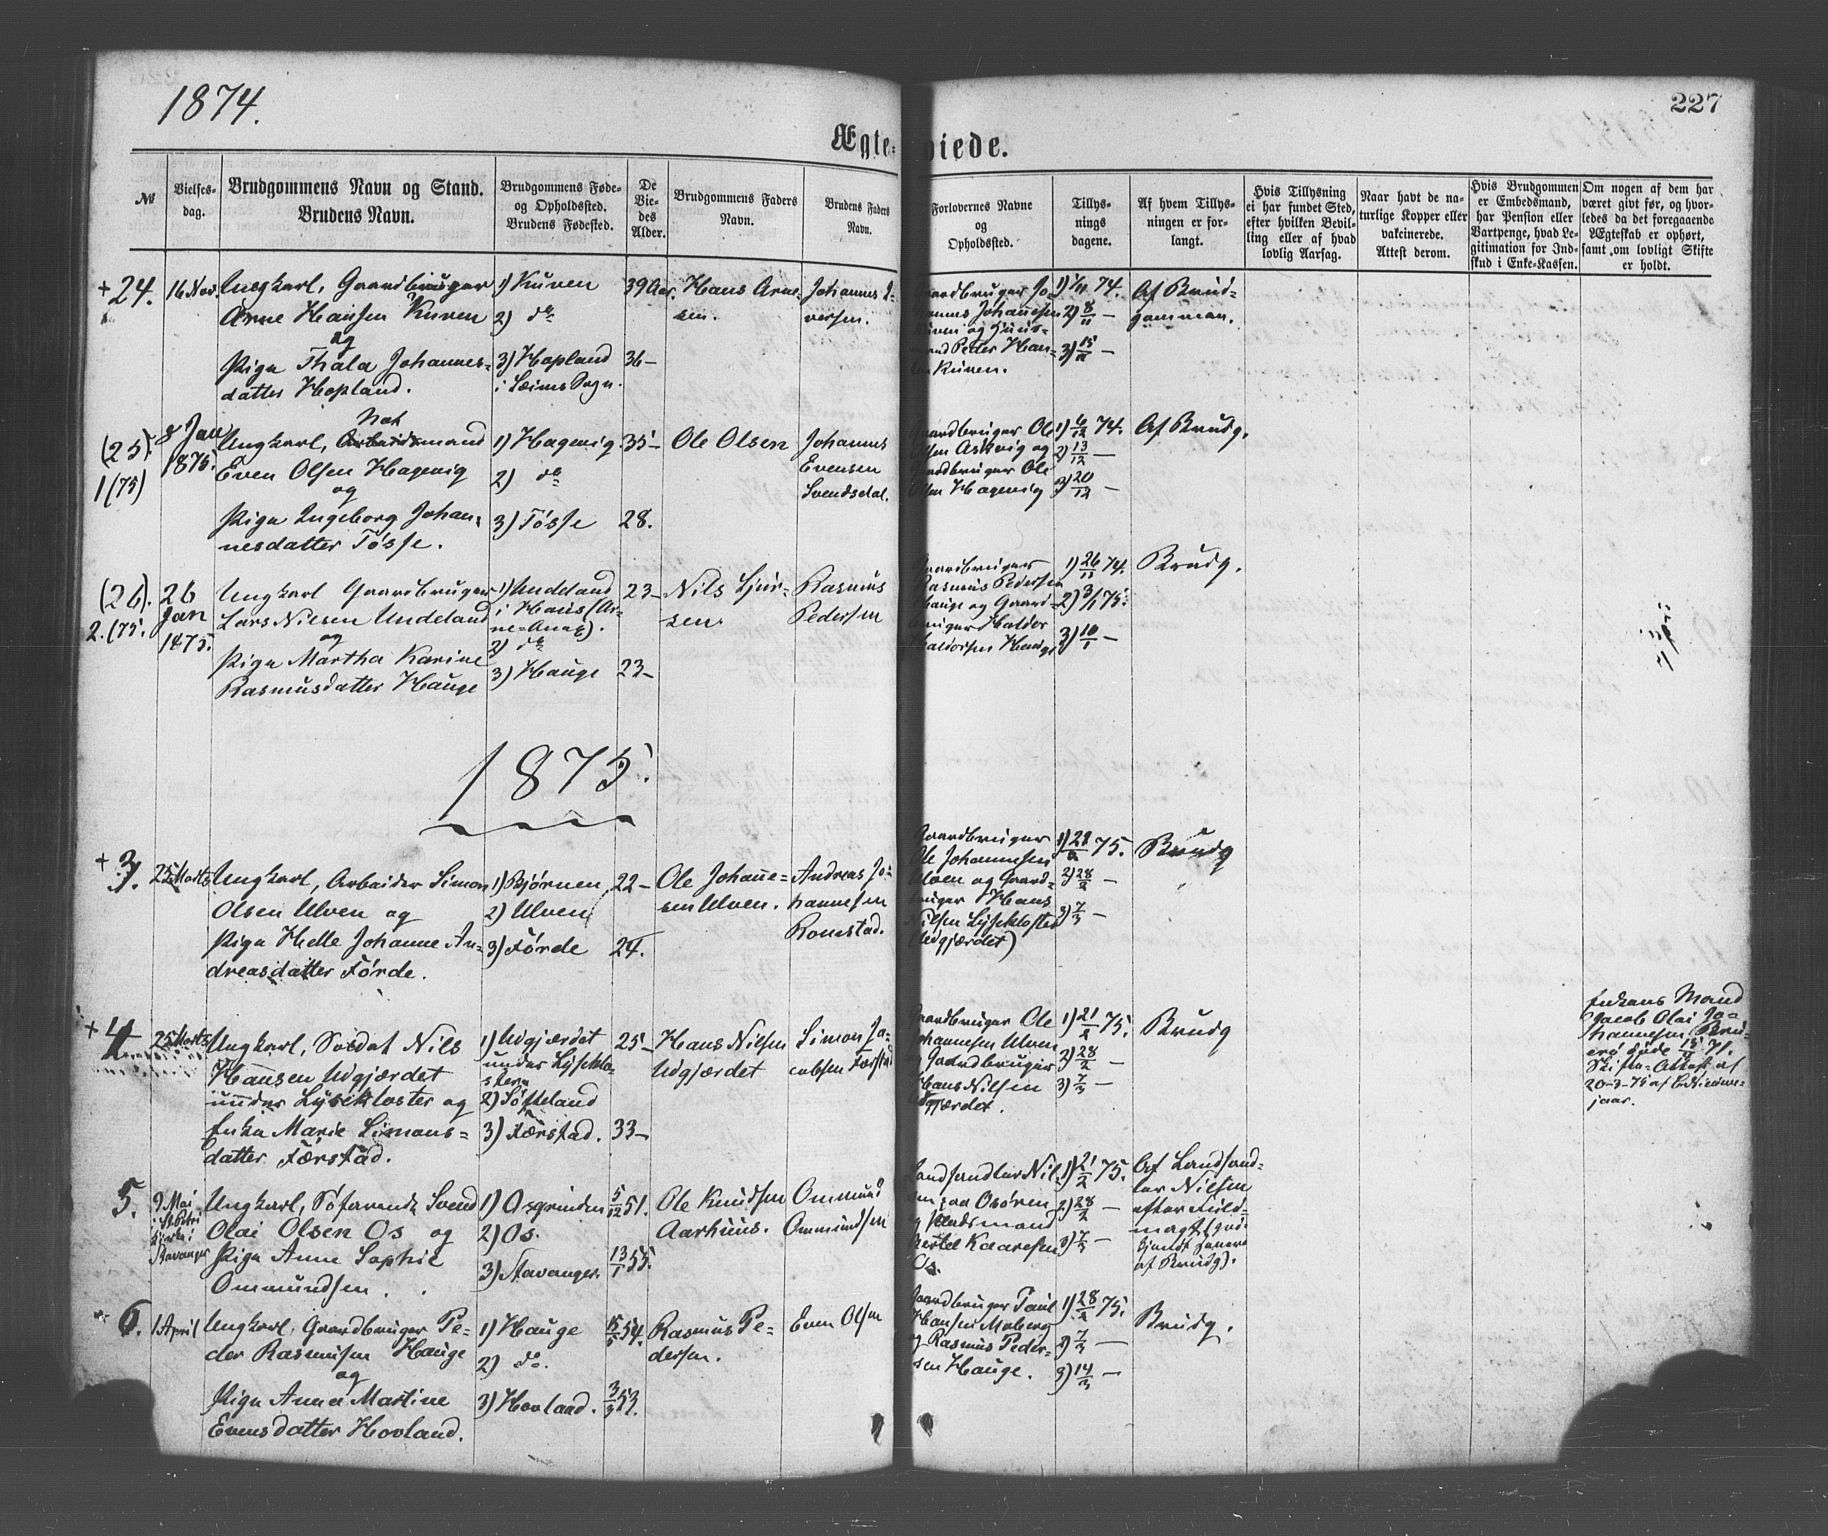 1874.
227
Ægte-
viede.
№
Vielses-
dag.
Brudgommens Navn og Stand.
Brudens Navn.
Brudgommens Føde-
og Opholdssted.
Brudens Fødested.
De
Vie-
des
Alder.
Brudgommens Faders
Navn.
Brudens Faders
Navn.
Forlovernes Navne
og
Opholdssted.
Tillys-
nings
dagene.
Af hvem Tillys-
ningen er for-
langt.
Hvis Tillysning
ei har fundet Sted,
efter hvilken Bevil-
ling eller af hvad
lovlig Aarsag.
Naar havt de na-
turlige Kopper eller
vakcinerede.
Attest derom.
Hvis Brudgommen
er Embedsmand,
har Pension eller
Vartpenge, hvad Le-
gitimation for Ind-
skud i Enke-Kassen.
Om nogen af dem har
været givt før, og hvor-
ledes da det foregaaende
Ægteskab er ophørt,
samt om lovligt Skifte
er holdt.
+ 24.
16 Nov.
Ungkarl, Gaardbruger
Arne Hansen Kuven
og
Pige Thala Johannes-
datter Hopland.
1) Kuven
2) do
3) Hopland
i Seims Sogn.
39 Aar.
36 —
Hans Arne-
sen.
Johannes I-
versen.
Gaardbruger Jo-
hannes Johannesen
Kuven og Huus-
mand Peder Han-
sen Kuven.
1) 1/11 74.
2) 8/11 —
3) 15/11 —
Af Brud-
gommen.
(25).
1 (75)
8 Jan
1875.
Not
Ungkarl, Arbeidsmand
Even Olsen Hagevig
og
Pige Ingeborg Johan-
nesdatter Tøsse.
1) Hagevig
2) do
3) Tøsse
35 —
28.
Ole Olsen
Johannes
Evensen
Svendsdal.
Gaardbruger Ole
Olsen Askvig og
Gaardbruger Ole
Olsen Hagevig
1) 6/12 74.
2) 13/12 —
3) 20/12 —
Af Brudg.
(26).
2. (75.
26
Jan
1875.
Ungkarl Gaardbruger
Lars Nilsen Undeland
og
Pige Martha Karine
Rasmusdatter Hauge
1) Undeland
i Haus (Ar-
ne-Annex).
2) do
3) Hauge
23 —
23 —
Nils Sjur-
sen.
Rasmus
Pedersen
Gaardbruger
Rasmus Pedersen
Hauge og Gaard-
bruger Haldor
Haldorsen Hauge
1) 26/12 74.
2) 3/1 75.
3) 10/1 —
Brudg.
1875.
+ 3.
25 Marts
Ungkarl, Arbeider Simon
Olsen Ulven og
Pige Helle Johanne An-
dreasdatter Førde.
1) Bjørnen
2) Ulven
3) Førde
22 —
24.
Ole Johanne-
sen Ulven.
Andreas Jo-
hannesen
Romstad.
Gaardbruger
Ole Johannesen
Ulven og Gaard-
bruger Hans
Nilsen Lysekloster
(Udgjærdet)
1) 21/2 75.
2) 28/2 —
3) 7/3 —
Brudg
+ 4
25 Marts
Ungkarl, Soldat Nils
Hansen Udgjærdet
under Lysekloster og
Enke Marie Simons-
datter Færstad.
1) Udgjærdet
under Lyseklo-
steren
2) Søfteland
3) Færstad.
25 —
33 —
Hans Nilsen
Udgjærdet
Simon Ja-
cobsen Færstad
Gaardbruger Ole
Johannesen Ulven
og Gaardbruger
Hans Nilsen
Udgjærdet.
1) 21/2 75.
2) 28/2 —
3) 7/3 —
Brudg
Enkens Mand
Jacob Olai Jo-
hannesen
døde
Skifte-Attest af
20-3-75 af
5.
9 Mai
i St Petri
Kirke i
Stavanger
Ungkarl, Søfarende Svend
Olai Olsen Os og
Pige Anne Sophie
Ommundsen.
1) Asgrinden
2) Os.
3) Stavanger.
5/12 51.
13/1 55.
Ole Knudsen
Aarhuus.
Ommund
Ommundsen
Landhandler Nil-
sen paa Osøren
og Pladsmand
Bertel Kaaresen
Os.
1) 21/2 75.
2) 28/2 —
3) 7/3 —
Af Landhand-
ler Nilsen
efter Fuld-
magt
af Brudg).
6.
1 April
Ungkarl, Gaardbruger Pe-
der Rasmusen Hauge
og
Pige Anna Martine
Evensdatter Hovland.
1) Hauge
2) do.
3) Hovland.
15/5 54.
3/3 53.
Rasmus Pe-
dersen.
Even Olsen
Gaardbruger Paul
Hansen Moberg
og Rasmus Peder-
sen Hauge.
1) 28/2 75.
2) 7/3 —
3) 14/3 —
Brudg.